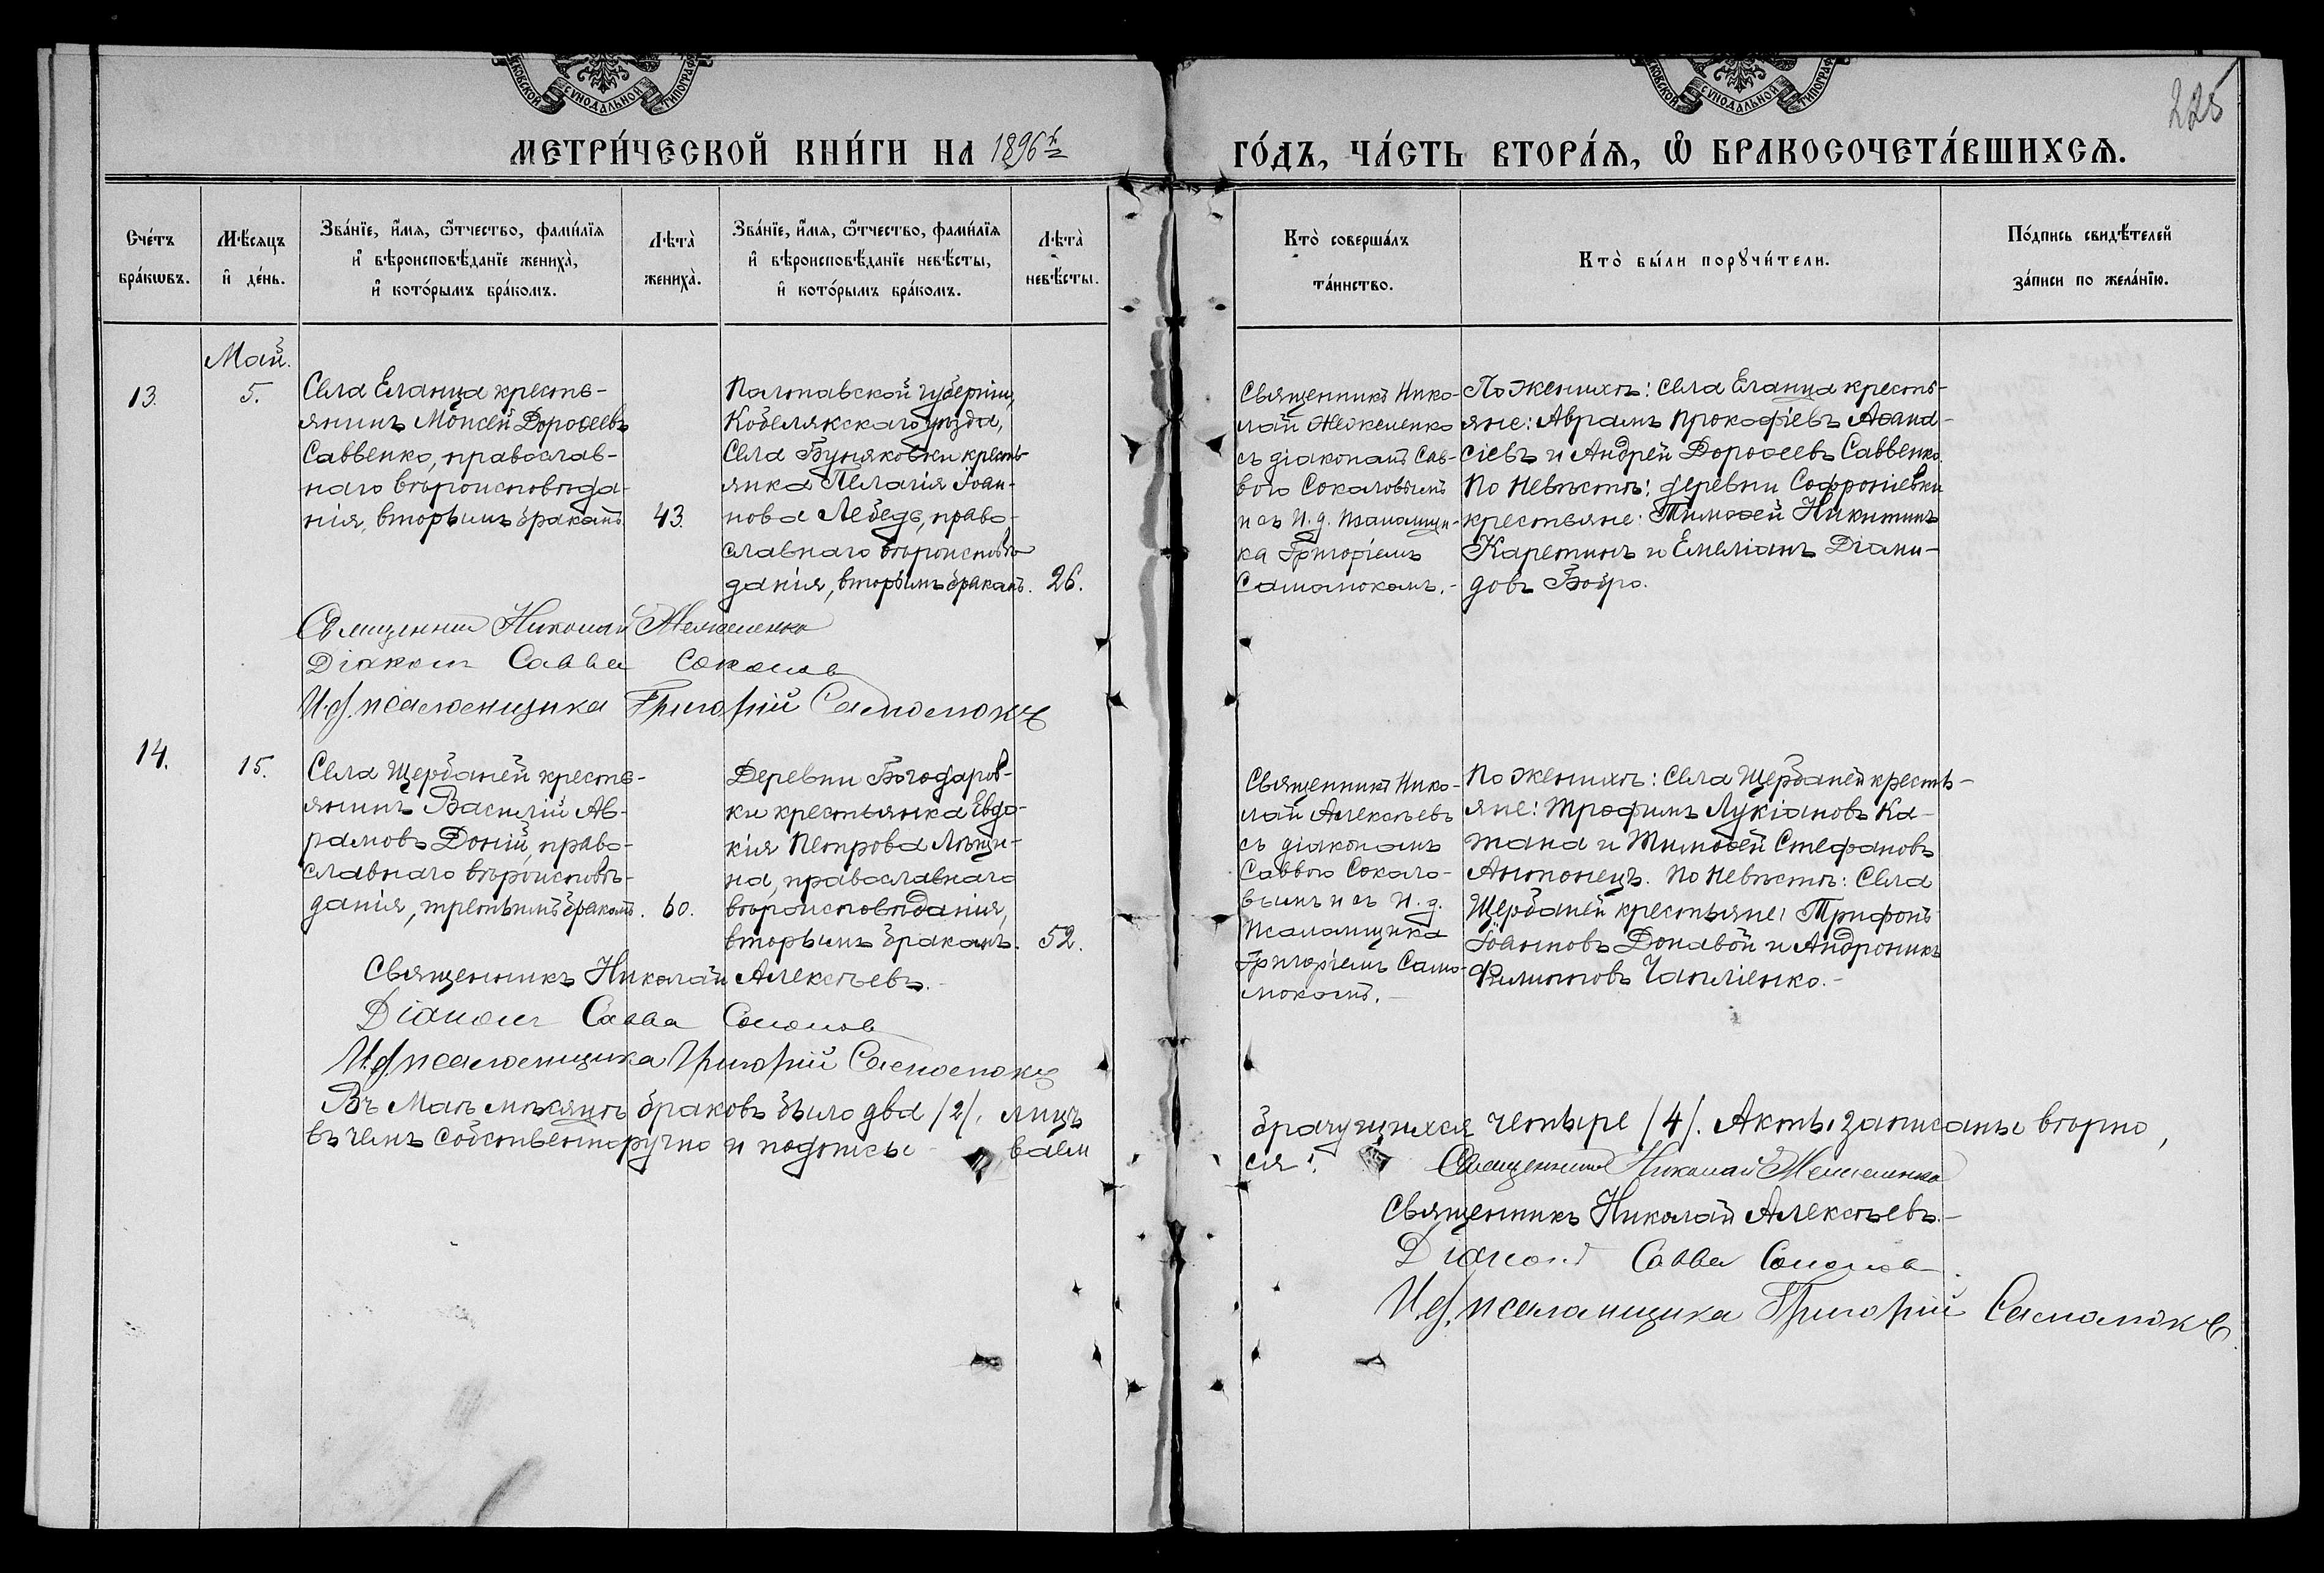 МОСКОВСКОЙ СѴНОДАЛЬНОЙ ТИПОГРАФ
МОСКОВСКОЙ СѴНОДАЛЬНОЙ ТИПОГРАФ
225
МЕТРИ́ЧЕСКОЙ КНИ́ГИ НА 1896й
ГО́ДЪ, ЧА́СТЬ ВТОРА́Ѧ, Ѡ БРАКОСОЧЕТА́ВШИХСѦ.
Сче́тъ
бра́кѡвъ.
Мѣ́сяцъ
и҆ де́нь.
Зва́нїе, и҆́мѧ, ѻ҆́тчество, фами́лїѧ
и҆ вѣроисповѣ́данїе жениха̀,
и҆ кото́рымъ бра́комъ.
Лѣта̀
жениха̀.
Зва́нїе, и҆́мѧ, ѻ҆́тчество, фами́лїѧ
и҆ вѣроисповѣ́данїе невѣ́сты,
и҆ кото́рымъ бра́комъ.
Лѣта̀
невѣ́сты.
Кто̀ соверша́лъ
та́инство.
Кто̀ бы́ли порꙋчи́тели.
По́дпись свидѣ́телей
за́писи по жела́нїю.
Май.
13.
5.
Села Еланца кресть-
янинъ Моисей Дороѳеевъ
Саввенко, православ-
наго вѣроисповѣда-
нія, вторымъ бракомъ
43.
Полтавской губерніи,
Кобелякскаго уѣзда,
Села Буняковки кресть-
янка Пелагія Іоан-
нова Лебедь, право-
славнаго вѣроисповѣ-
данія, вторымъ бракомъ.
26.
Священникъ Нико-
лай Межеленко
съ діакономъ Сав-
вою Соколовымъ
и съ И. д. псаломщи-
ка Григоріемъ
Самотокомъ.-
По женихѣ: Села Еланца кресть-
яне: Аврамъ Прокофіевъ Аѳана-
сіевъ и Андрей Дороѳеевъ Саввенко.
По невѣстѣ: деревни Софроніевки
крестьяне: Тимоѳей Никитинъ
Каретинъ и Емеліанъ Діами-
довъ Бойро.
Священникъ Николай Межеленко
Діаконъ Савва Соколовъ
И. д. псаломщика Григорій Самотокъ
14.
15.
Села Щербаней кресть-
янинъ Василій Ав-
рамовъ Доній, право-
славнаго вѣроисповѣ-
данія, третьимъ бракомъ.
60.
Деревни Богодаров-
ки крестьянка Евдо-
кія Петрова Лѣщи-
на, православнаго
вѣроисповѣданія,
вторымъ бракомъ.
52.
Священникъ Нико-
лай Алексѣевъ
съ діакономъ
Саввою Соколо-
вымъ и съ И. д.
псаломщика
Григоріемъ Само-
токомъ.-
По женихѣ: Села Щербаней кресть-
яне: Трофимъ Лукіановъ Ка-
тана и Тимоѳей Стефановъ
Антонецъ. По невѣстѣ: Села
Щербаней крестьяне: Трифонъ
Іоанновъ Донавой и Андроникъ
Филипповъ Чапліенко.-
Священникъ Николай Алексѣевъ.-
Діаконъ Савва Соколовъ
И. д. псаломщика Григорій Самотокъ
Въ Маѣ мѣсяцѣ браковъ было два /2/. лицъ брачущихся четыре /4/. Акты записаны вѣрно,
въ чемъ собственноручно и подписы- ваем ся:
Священникъ Николай Межеленко
Священникъ Николай Алексѣевъ.-
Діаконъ Савва Соколовъ.
И. д. псаломщика Григорій Самотокъ.